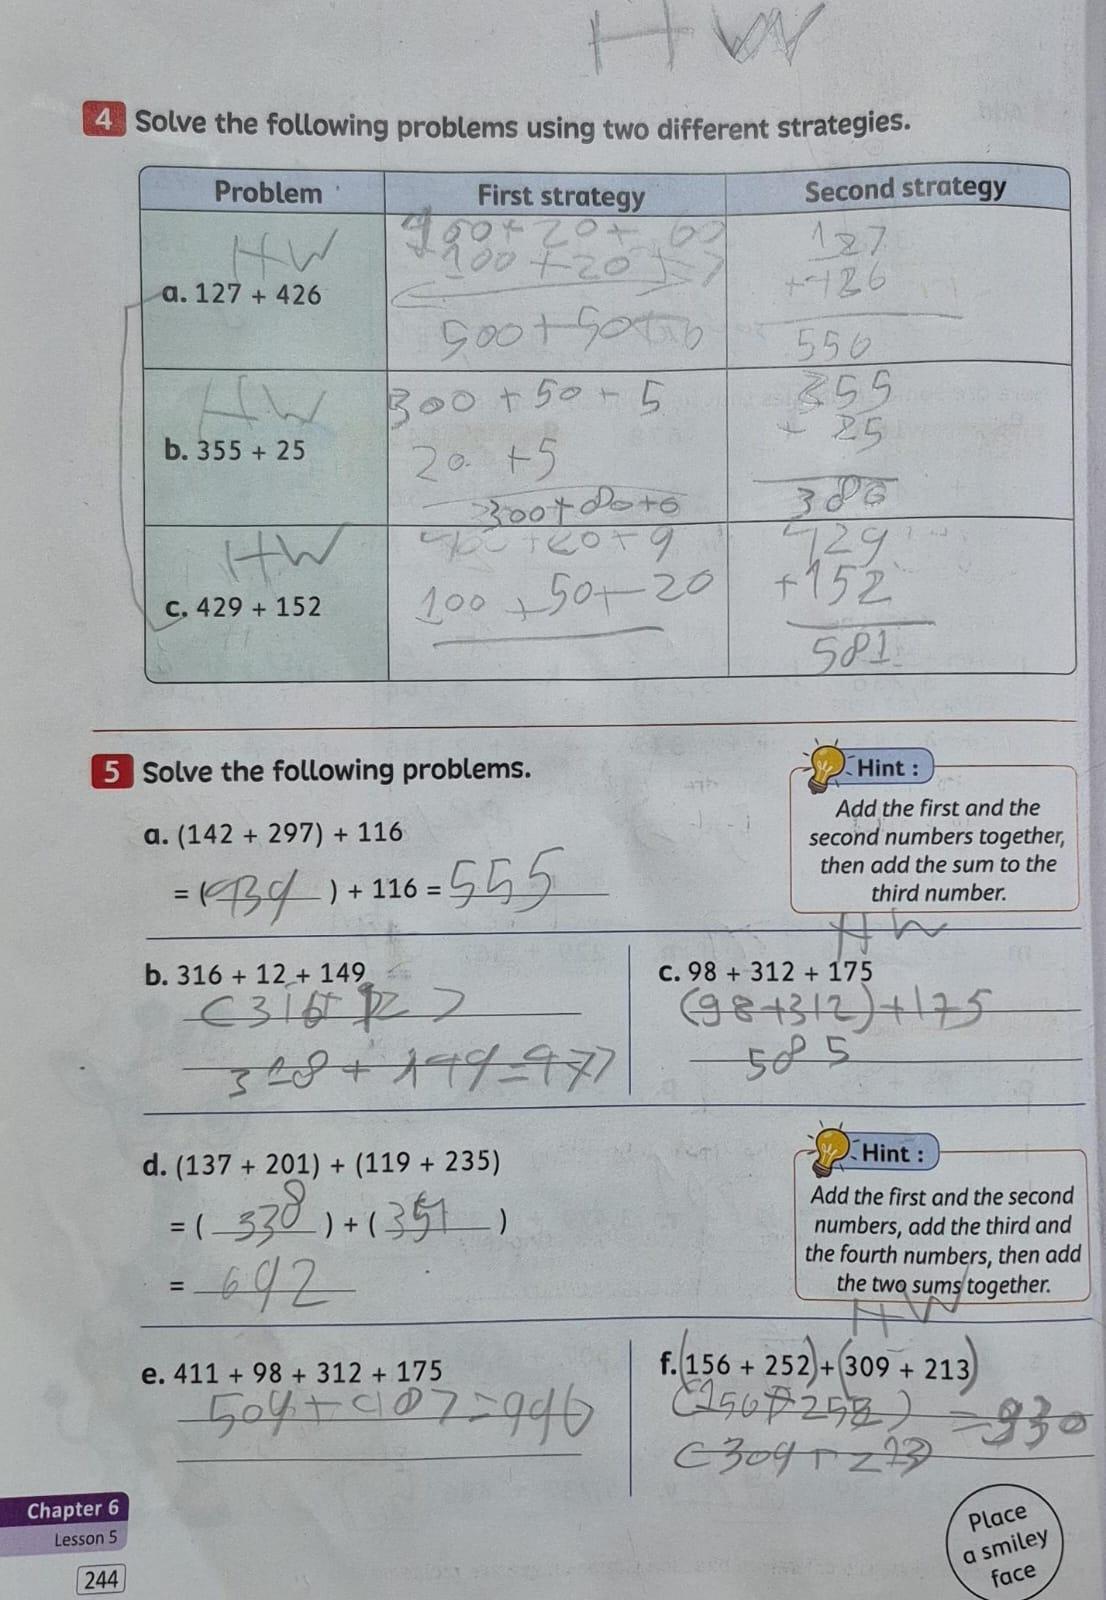 HW
4 Solve the following problems using two different strategies.
Problem
First strategy
Second strategy
HW
a. 127 + 426
400+20+60
100+20+7
500+50+0
127
+426
550
HW
b. 355 + 25
300+50+5
20 +5
300+80+0
355
+ 25
380
HW
c. 429 + 152
400+20+9
100+50+20
429
+152
581
5 Solve the following problems.
Hint :
Add the first and the
second numbers together,
then add the sum to the
third number.
a. (142 + 297) + 116
= (439) + 116 = 555
HW
b. 316 + 12 + 149
(316+12)
328+149=477
c. 98 + 312 + 175
(98+312)+175
585
Hint :
Add the first and the second
numbers, add the third and
the fourth numbers, then add
the two sums together.
d. (137 + 201) + (119 + 235)
= (338) + (351)
= 692
HW
e. 411 + 98 + 312 + 175
509+487=996
f. (156 + 252)+(309 + 213)
(156+252) =930
(309+213)
Chapter 6
Lesson 5
244
Place
a smiley
face